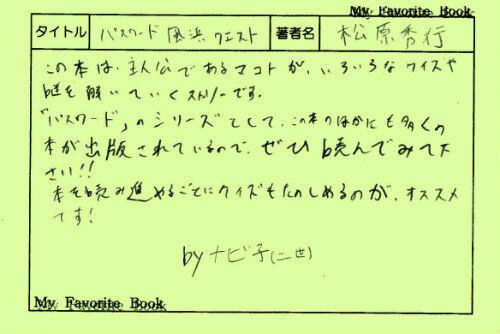 My Favorite Book
タイトル パスワード風浜クエスト 著者名 松原秀行
この本は、主人公であるマコトが、いろいろなクイズや
謎を解いていくストーリーです。
「パスワード」のシリーズとして、この本のほかにも多くの
本が出版されているので、ぜひ読んでみて下
さい!!
本を読み進めるごとにクイズもたのしめるのが、オススメ
です!
byナビ子(二世)
My Favorite Book